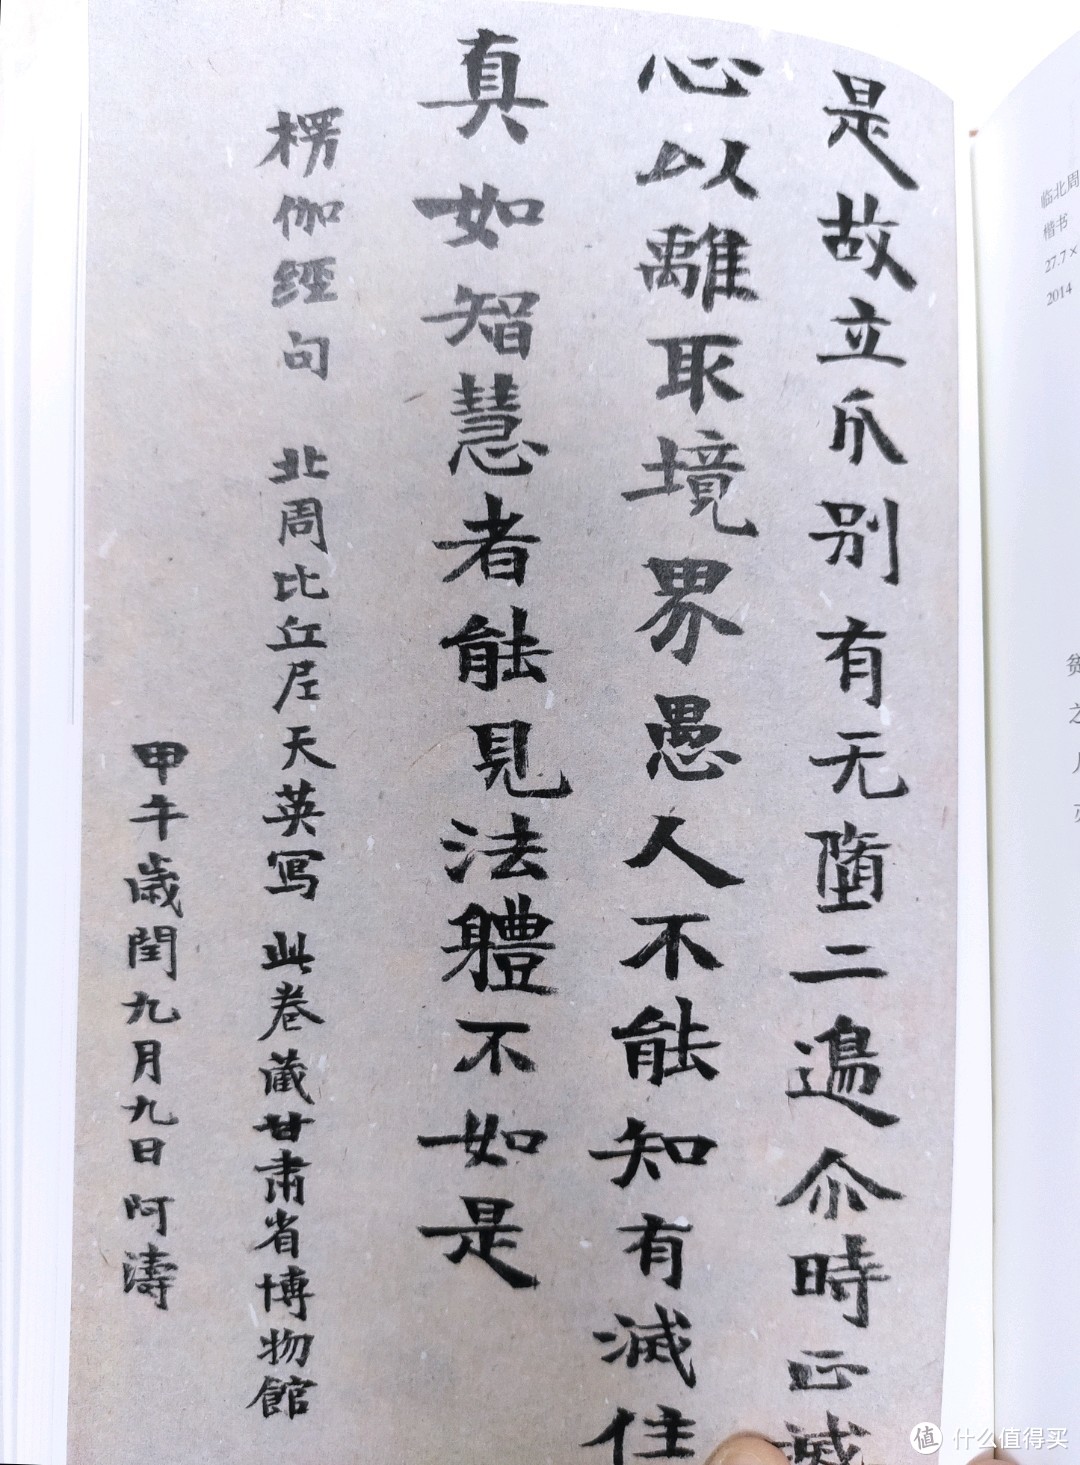 临北周
楷书
27.7×
2014
是故立爪别有无墮二邊尒時正滅
心以離取境界愚人不能知有滅住
真如智慧者能見法體不如是
楞伽經句 北周比丘尼天英寫 此卷藏甘肅省博物館
甲午歲閏九月九日阿濤
值 什么值得买